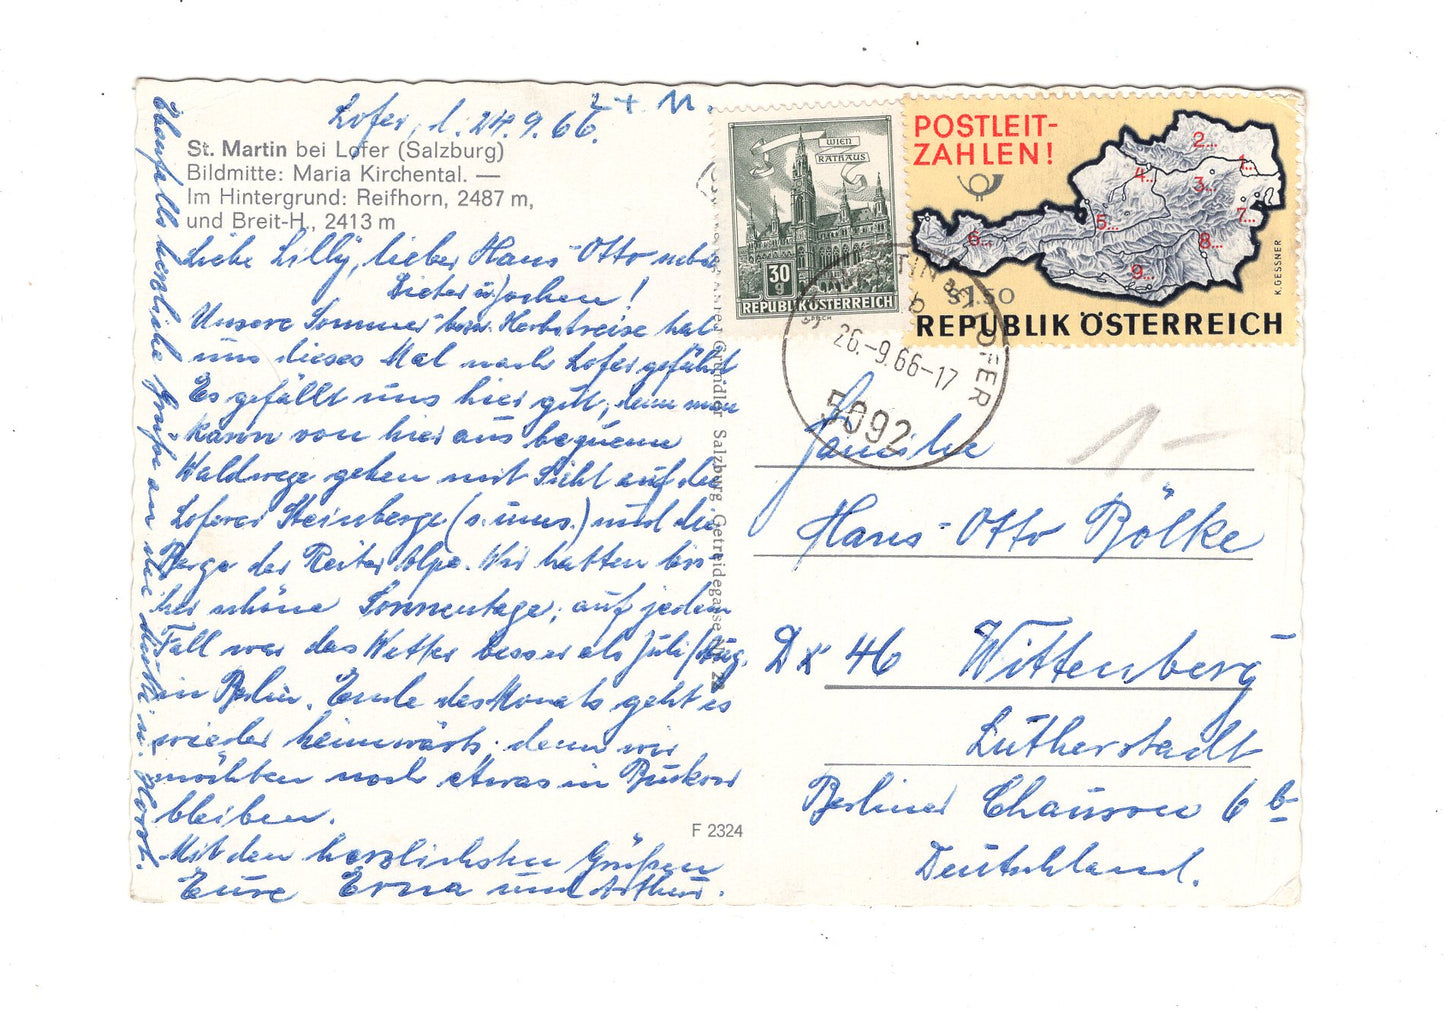 Lofer, d. 24.9.66.
2+. M.
St. Martin bei Lofer (Salzburg)
Bildmitte: Maria Kirchental. —
Im Hintergrund: Reifhorn, 2487 m,
und Breit-H., 2413 m
Liebe Lilly, lieber Hans-Otto nebst
Dieter u. Jochen!
Unsere Sommer- bzw. Herbstreise hat
uns dieses Mal nach Lofer geführt
Es gefällt uns hier gut, denn man
kann von hier aus bequeme
Waldwege gehen mit Sicht auf die
Loferer Steinberge (s. ums.) und die
Berge der Reiter Alpe. Wir hatten bis-
her schöne Sonnentage; auf jeden
Fall war das Wetter besser als Juli/Aug.
in Berlin. Ende des Monats geht es
wieder heimwärts, denn wir
möchten noch etwas in Buckow
bleiben.
Mit den herzlichsten Grüßen
Eure Erna und Arthur.
Ebenfalls herzliche Grüße an
Horst.
F 2324
Salzburg, Getreidegasse Nr. 22
WIEN
RATHAUS
30
g
REPUBLIK ÖSTERREICH
POSTLEIT-
ZAHLEN!
2...
1...
4...
3...
5...
7...
6...
8...
9...
S 1.50
K. GESSNER
REPUBLIK ÖSTERREICH
ST. MARTIN bei LOFER
b
26.-9.66-17
5092
1,-
Familie
Hans-Otto Bölke
DX 46 Wittenberg-
Lutherstadt
Berliner Chaussee 6 b
Deutschland.